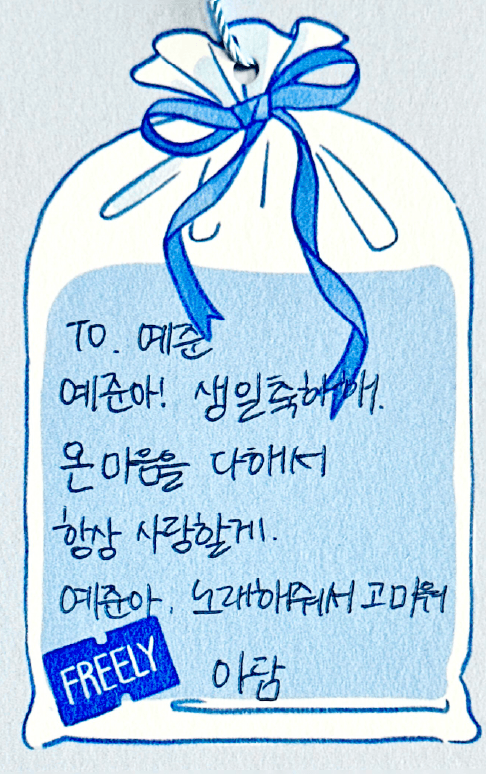 TO. 예준
예준아! 생일축하해.
온 마음을 다해서
항상 사랑할게.
예준아, 노래해줘서 고마워
FREELY
아담